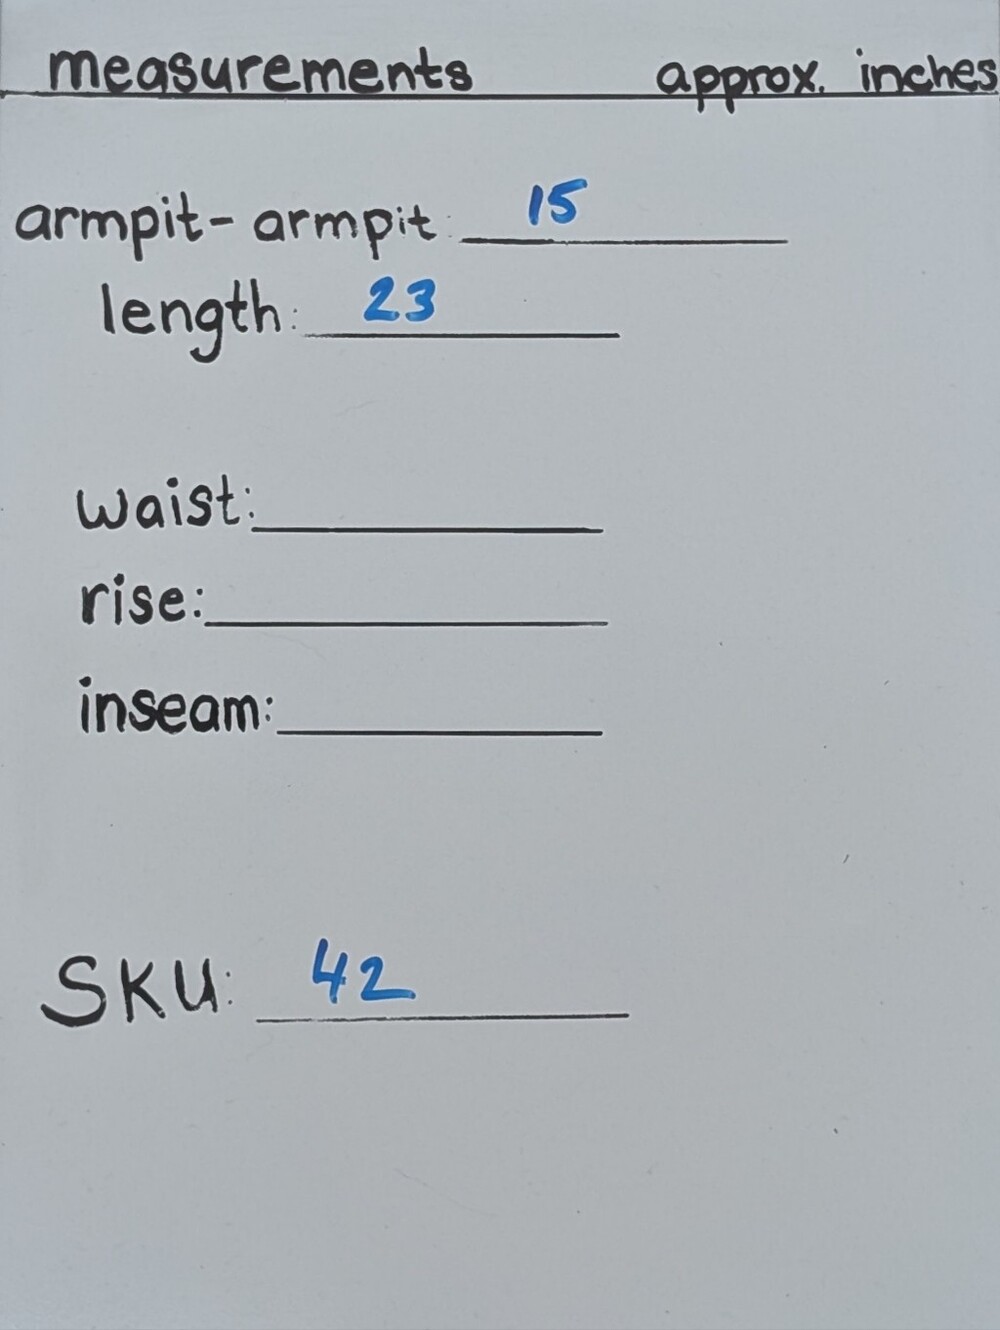 measurements approx. inches
armpit-armpit: 15
length: 23
waist:
rise:
inseam:
SKU: 42